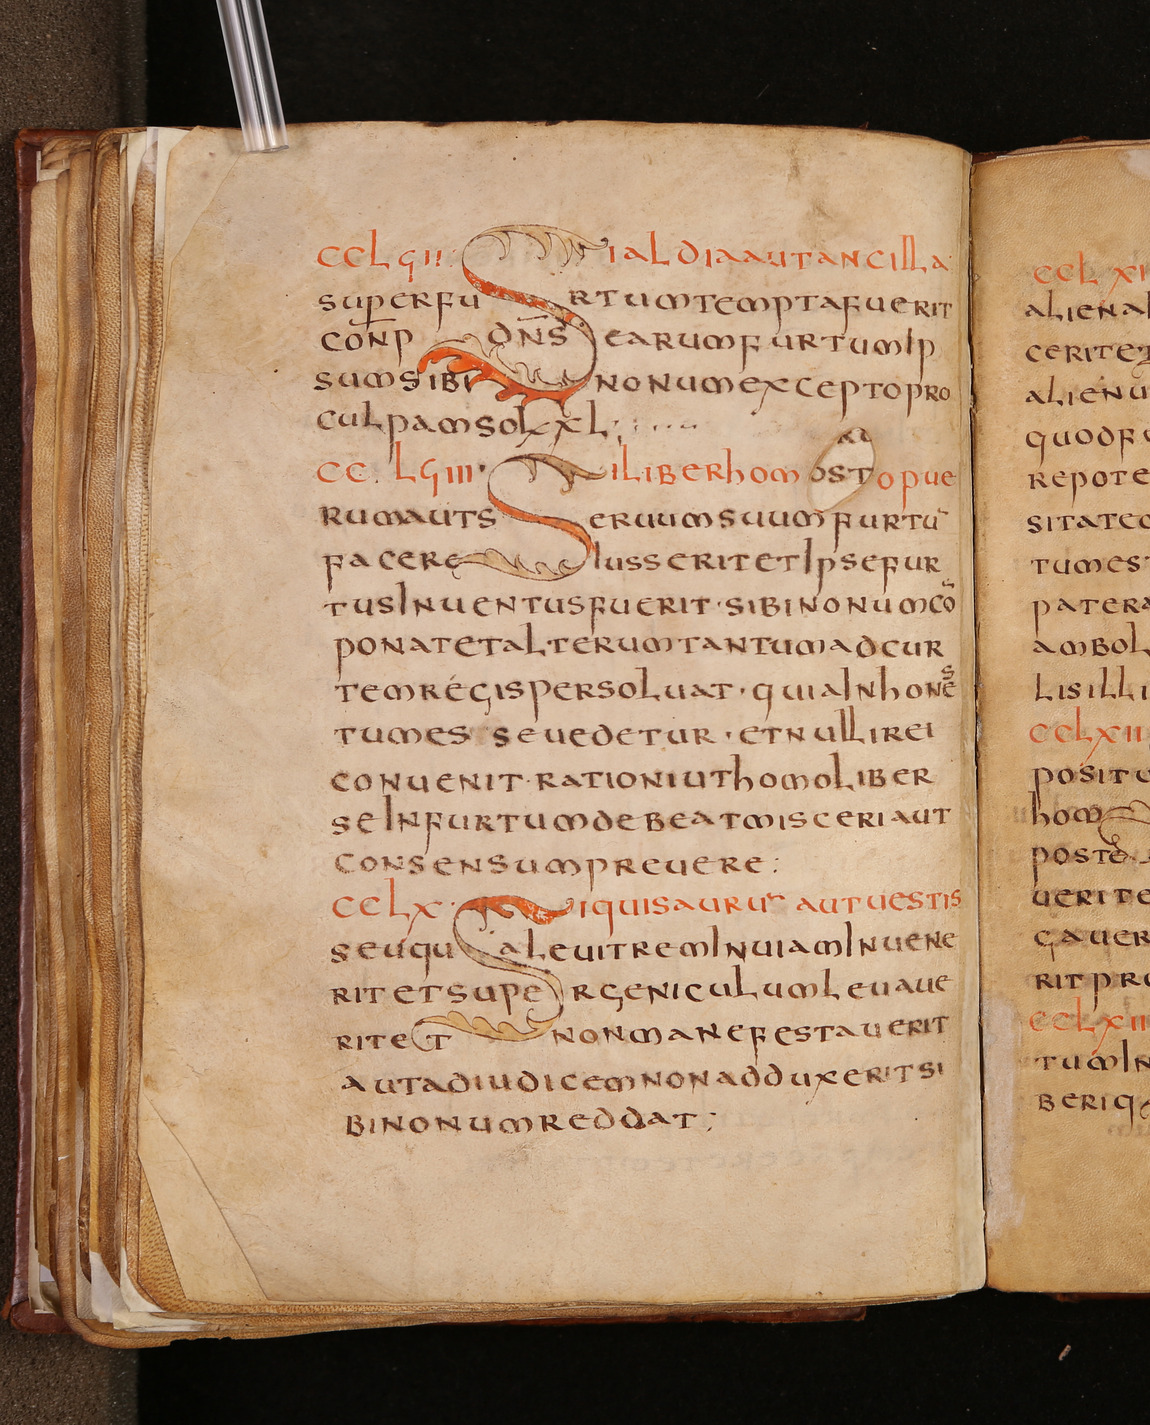 CCLϛII Si aldia aut ancilla
super furtum temptata fuerit
conp dn̄s earum furtum ip
sum sibi nonum excepto pro
culpam sol xxL;
CC.LϛIII· Si liber homo puerum
rum aut seruum suum furtū
facere iusserit et ipse fur
tus inuentus fuerit · sibi nonum cō
ponat et alterum tantum ad cur
tem regis persoluat · quia inhones
tum esse uedetur · et nulli rei
conuenit · rationi ut homo liber
se in furtum debeat misceri aut
consensum preuere :
CCLX · Si quis aurum aut uestis
seu qualeuit rem in uiam inuene
rit et super geniculum leuaue
rit et non manefestauerit
aut ad iudicem non adduxerit si
bi nonum reddat ;
CCLXI
aliena
cerit et
alienu
quod f
repote
sitatec
tum est
pater a
ambol
lis illi
CCLXII
positu
hom
poste
uerit e
gauer
rit pro
CCLXII
tum in
beri q